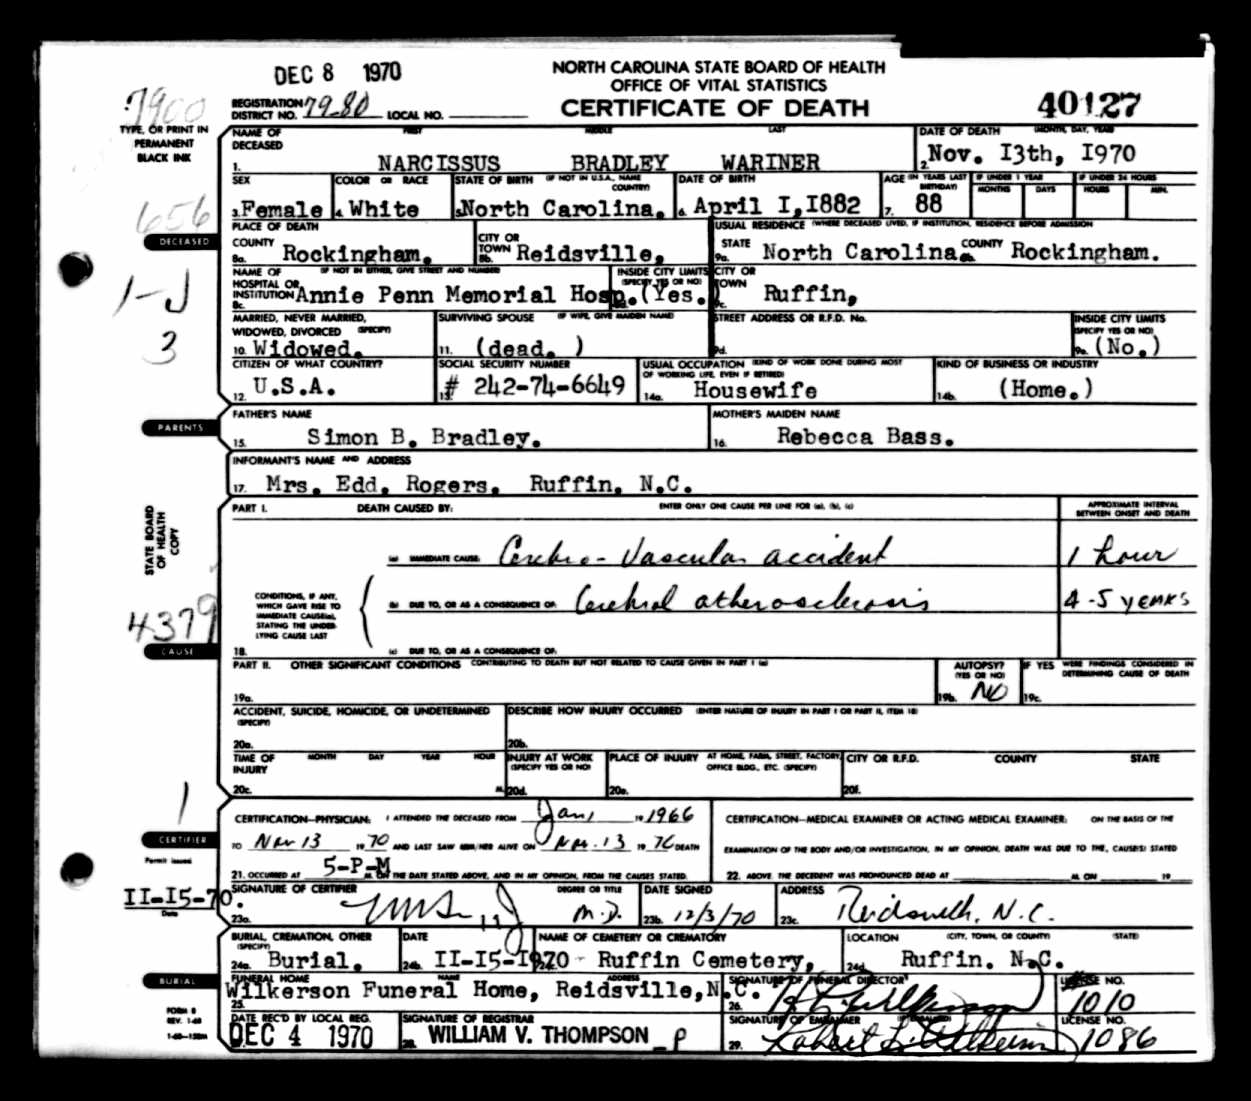 DEC 8 1970
NORTH CAROLINA STATE BOARD OF HEALTH
OFFICE OF VITAL STATISTICS
CERTIFICATE OF DEATH
40127
7900
REGISTRATION DISTRICT NO. 7980 LOCAL NO.
TYPE, OR PRINT IN PERMANENT BLACK INK
NAME OF DECEASED FIRST MIDDLE LAST
1. NARCISSUS BRADLEY WARINER
DATE OF DEATH (MONTH, DAY, YEAR)
2. Nov. I3th, I970
SEX
3. Female
COLOR OR RACE
4. White
STATE OF BIRTH (IF NOT IN U.S.A., NAME COUNTRY)
5. North Carolina.
DATE OF BIRTH
6. April I, I882
AGE (IN YEARS LAST BIRTHDAY)
7. 88
IF UNDER 1 YEAR MONTHS DAYS
IF UNDER 24 HOURS HOURS MIN.
656
DECEASED
PLACE OF DEATH
COUNTY
8a. Rockingham.
CITY OR TOWN
8b. Reidsville,
USUAL RESIDENCE (WHERE DECEASED LIVED, IF INSTITUTION, RESIDENCE BEFORE ADMISSION
STATE
9a. North Carolina
COUNTY
9b. Rockingham.
NAME OF HOSPITAL OR INSTITUTION (IF NOT IN EITHER, GIVE STREET AND NUMBER)
8c. Annie Penn Memorial Hosp.
INSIDE CITY LIMITS (SPECIFY YES OR NO)
(Yes.)
CITY OR TOWN
9c. Ruffin,
1-J
3
MARRIED, NEVER MARRIED, WIDOWED, DIVORCED (SPECIFY)
10. Widowed.
SURVIVING SPOUSE (IF WIFE, GIVE MAIDEN NAME)
11. (dead. )
STREET ADDRESS OR R.F.D. No.
9d.
INSIDE CITY LIMITS (SPECIFY YES OR NO)
9e. (No.)
CITIZEN OF WHAT COUNTRY?
12. U.S.A.
SOCIAL SECURITY NUMBER
13. # 242-74-6649
USUAL OCCUPATION (KIND OF WORK DONE DURING MOST OF WORKING LIFE, EVEN IF RETIRED)
14a. Housewife
KIND OF BUSINESS OR INDUSTRY
14b. (Home.)
PARENTS
FATHER'S NAME
15. Simon B. Bradley.
MOTHER'S MAIDEN NAME
16. Rebecca Bass.
INFORMANT'S NAME AND ADDRESS
17. Mrs. Edd. Rogers. Ruffin, N.C.
STATE BOARD OF HEALTH COPY
PART I. DEATH CAUSED BY: ENTER ONLY ONE CAUSE PER LINE FOR (a), (b), (c)
APPROXIMATE INTERVAL BETWEEN ONSET AND DEATH
(a) IMMEDIATE CAUSE: Cerebro-Vascular accident 1 hour
CONDITIONS, IF ANY, WHICH GAVE RISE TO IMMEDIATE CAUSE(a), STATING THE UNDERLYING CAUSE LAST
(b) DUE TO, OR AS A CONSEQUENCE OF: Cerebral atherosclerosis 4-5 years
4379
CAUSE
18. (c) DUE TO, OR AS A CONSEQUENCE OF:
PART II. OTHER SIGNIFICANT CONDITIONS CONTRIBUTING TO DEATH BUT NOT RELATED TO CAUSE GIVEN IN PART I (a)
19a.
AUTOPSY? (YES OR NO)
19b. NO
IF YES WERE FINDINGS CONSIDERED IN DETERMINING CAUSE OF DEATH
19c.
ACCIDENT, SUICIDE, HOMICIDE, OR UNDETERMINED (SPECIFY)
20a.
DESCRIBE HOW INJURY OCCURRED (ENTER NATURE OF INJURY IN PART I OR PART II, ITEM 18)
20b.
TIME OF INJURY MONTH DAY YEAR HOUR
20c. M.
INJURY AT WORK (SPECIFY YES OR NO)
20d.
PLACE OF INJURY AT HOME, FARM, STREET, FACTORY, OFFICE BLDG., ETC. (SPECIFY)
20e.
CITY OR R.F.D. COUNTY STATE
20f.
1
CERTIFIER
Permit issued
CERTIFICATION—PHYSICIAN: I ATTENDED THE DECEASED FROM Jan, 19 1966
TO Nov 13 19 70 AND LAST SAW HIM/HER ALIVE ON Nov. 13 19 70 DEATH
21. OCCURRED AT 5-P-M M. ON THE DATE STATED ABOVE, AND IN MY OPINION, FROM THE CAUSES STATED.
CERTIFICATION—MEDICAL EXAMINER OR ACTING MEDICAL EXAMINER: ON THE BASIS OF THE
EXAMINATION OF THE BODY AND/OR INVESTIGATION, IN MY OPINION, DEATH WAS DUE TO THE, CAUSE(S) STATED
22. ABOVE. THE DECEDENT WAS PRONOUNCED DEAD AT M. ON 19
II-I5-70.
Date
SIGNATURE OF CERTIFIER
23a.
DEGREE OR TITLE
M.D.
DATE SIGNED
23b. 12/3/70
ADDRESS
23c. Reidsville, N.C.
BURIAL, CREMATION, OTHER (SPECIFY)
24a. Burial.
DATE
24b. II-I5-I970
NAME OF CEMETERY OR CREMATORY
Ruffin Cemetery,
LOCATION (CITY, TOWN, OR COUNTY) (STATE)
24d. Ruffin. N.C.
BURIAL
FUNERAL HOME NAME ADDRESS
25. Wilkerson Funeral Home, Reidsville, N.C.
SIGNATURE OF FUNERAL DIRECTOR
26.
LICENSE NO.
1010
FORM 8
REV. 1-68
DATE REC'D BY LOCAL REG.
DEC 4 1970
SIGNATURE OF REGISTRAR
28. WILLIAM V. THOMPSON
SIGNATURE OF EMBALMER (IF EMBALMED)
29. Robert L. Wilkerson
LICENSE NO.
1086